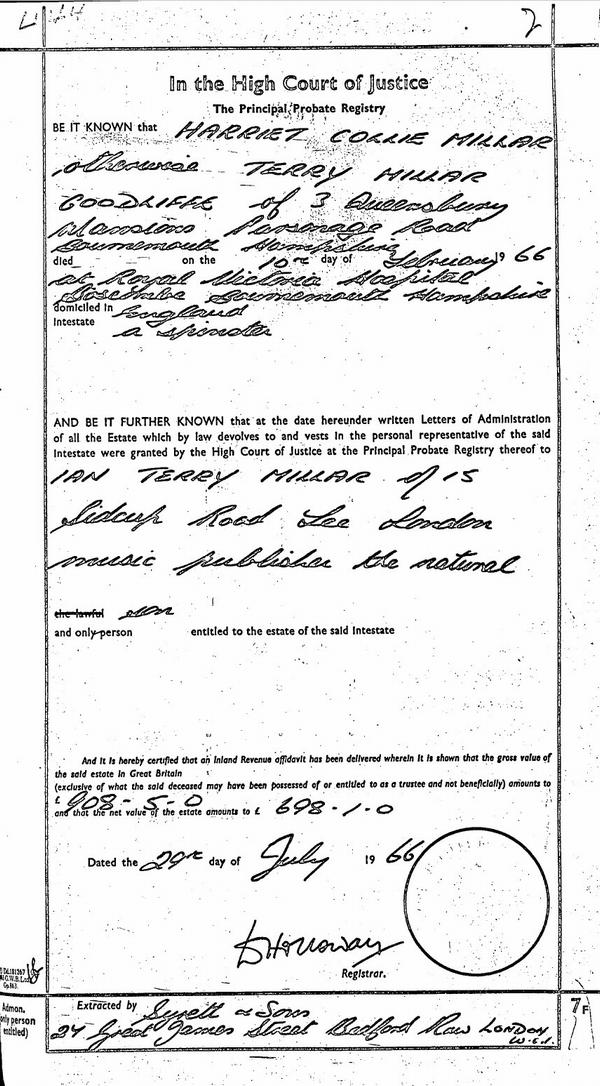 2
In the High Court of Justice
The Principal Probate Registry
BE IT KNOWN that HARRIET COLLIE MILLAR
otherwise TERRY MILLAR
GOODLIFFE of 3 Queensbury
Mansions Parsonage Road
Bournemouth Hampshire
died on the 10th day of February 19 66
at Royal Victoria Hospital
Boscombe Bournemouth Hampshire
domiciled in England
Intestate a spinster
AND BE IT FURTHER KNOWN that at the date hereunder written Letters of Administration
of all the Estate which by law devolves to and vests in the personal representative of the said
Intestate were granted by the High Court of Justice at the Principal Probate Registry thereof to
IAN TERRY MILLAR of 15
Sidcup Road Lee London
music publisher the natural
the lawful son
and only person entitled to the estate of the said Intestate
And it is hereby certified that an Inland Revenue affidavit has been delivered wherein it is shown that the gross value of
the said estate in Great Britain
(exclusive of what the said deceased may have been possessed of or entitled to as a trustee and not beneficially) amounts to
£ 908-5-0
and that the net value of the estate amounts to £ 698-1-0
Dated the 29th day of July 19 66
Holloway
Registrar.
Admon.
only person
entitled)
Extracted by Syrett & Sons
24 Great James Street Bedford Row LONDON
W.C.1.
7F